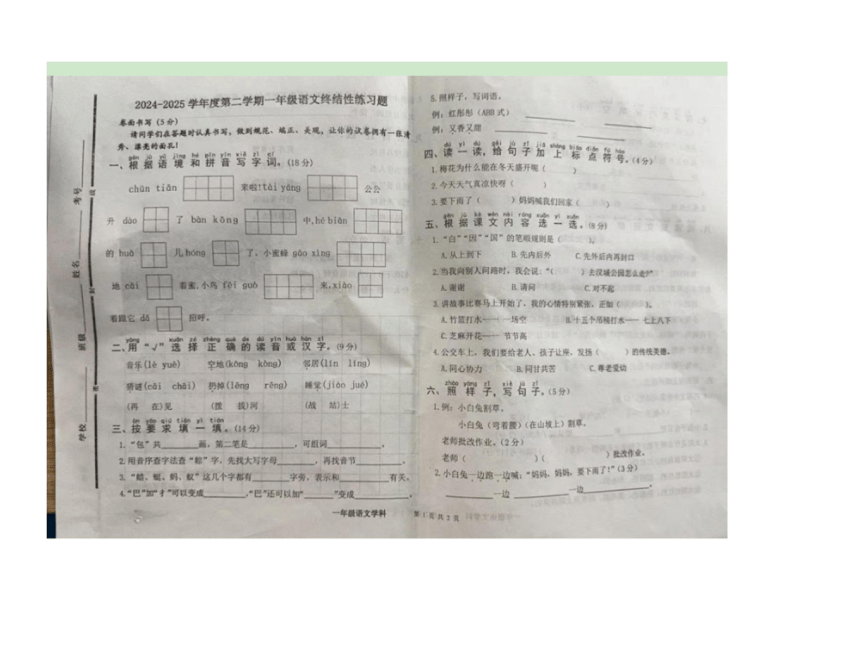 2024-2025 学年度第二学期一年级语文终结性练习题
卷面书写(5分)
请同学们在答题时认真书写,做到规范、端正、美观,让你的试卷拥有一张清
秀、漂亮的面孔!
一、根据语境和拼音写字词。(18分)
chūn tiān 来啦!tài yáng 公公
升 dào 了 bàn kōng 中,hé biān
的 huā 儿 hóng 了,小蜜蜂 gāo xìng
地 cǎi 着蜜,小鸟 fēi guò 来,xiào
着跟它 dǎ 招呼。
二、用“√”选择正确的读音或汉字。(9分)
音乐(lè yuè) 空地(kōng kòng) 邻居(lín líng)
猜谜(cāi chāi) 扔掉(lēng rēng) 睡觉(jiào jué)
(再 在)见 (拨 拔)河 (战 站)士
三、按要求填一填。(14分)
1.“包”共 画,第二笔是 ,可组词 。
2.用音序查字法查“粽”字,先找大写字母 ,再找音节 。
3.“蜻、蜓、蚂、蚁”这几个字都有 字旁,表示和 有关。
4.“巴”加“扌”可以变成 ,“巴”还可以加“ ”变成 。
一年级语文学科
5.照样子,写词语。
例:红彤彤(ABB 式)
例:又香又甜
四、读一读,给句子加上标点符号。(4分)
1.梅花为什么能在冬天盛开呢( )
2.今天天气真凉快呀( )
3.要下雨了( )妈妈喊我们回家( )
五、根据课文内容选一选。(8分)
1.“白”“因”“国”的笔顺规则是( )。
A.从上到下 B.先内后外 C.先外后内再封口
2.当我向别人问路时,我会说:“( )去汉城公园怎么走?”
A.谢谢 B.请问 C.对不起
3.讲故事比赛马上开始了,我的心情特别紧张,正如( )。
A.竹篮打水——一场空 B.十五个吊桶打水——七上八下
C.芝麻开花——节节高
4.公交车上,我们要给老人、孩子让座,发扬( )的传统美德。
A.同心协力 B.同甘共苦 C.尊老爱幼
六、照样子,写句子。(5分)
1.例:小白兔割草。
小白兔(弯着腰)(在山坡上)割草。
老师批改作业。(2分)
老师( )( )批改作业。
2.小白兔一边跑一边喊:“妈妈,妈妈,要下雨了!”(3分)
一边 一边 。
第1页共2页